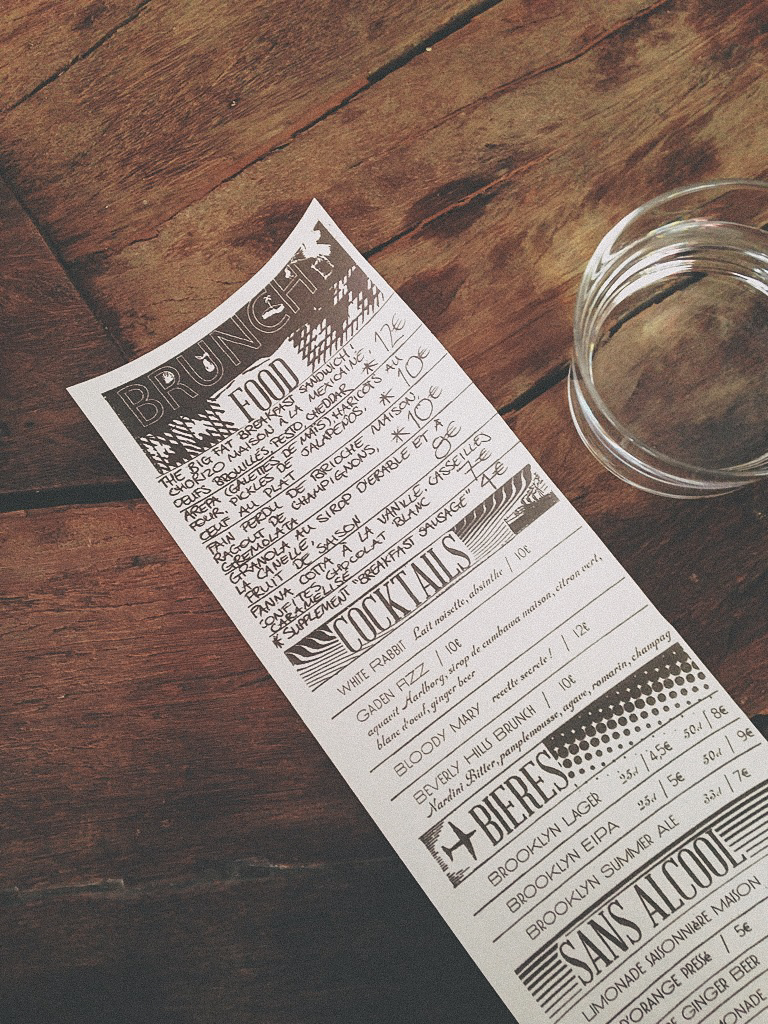 BRUNCH
FOOD
THE BIG FAT BREAKFAST SANDWICH!
CHORIZO MAISON À LA MEXICAINE, 12€
OEUFS BROUILLÉS PESTO, CHEDDAR *
AREPA (GALETTES DE MAÏS), HARICOTS AU 10€
FOUR, PICKLES DE JALAPEÑOS, *
OEUF AU PLAT
PAIN PERDU DE BRIOCHE MAISON, 10€
RAGOUT DE CHAMPIGNONS, *
GREMOLATA
GRANOLA AU SIROP D'ERABLE ET À 8€
LA CANELLE,
FRUIT DE SAISON
PANNA COTTA À LA VANILLE, CASSEILLES 7€
CONFITES, CHOCOLAT BLANC
CARAMÉLISÉ
* SUPPLÉMENT "BREAKFAST SAUSAGE" 4€
COCKTAILS
WHITE RABBIT Lait noisette, absinthe / 10€
GADEN FIZZ / 10€
aquavit Harlborg, sirop de cumbawa maison, citron vert,
blanc d'oeuf, ginger beer
BLOODY MARY recette secrète ! / 12€
BEVERLY HILLS BRUNCH / 10€
Nardini Bitter, pamplemousse, agave, romarin, champag
BIERES
BROOKLYN LAGER 25cl / 4,5€ 50cl / 8€
BROOKLYN EIPA 25cl / 5€ 50cl / 9€
BROOKLYN SUMMER ALE 33cl / 7€
SANS ALCOOL
LIMONADE SAISONNIèRE MAISON
D'ORANGE PRESSé / 5€
GINGER BEER